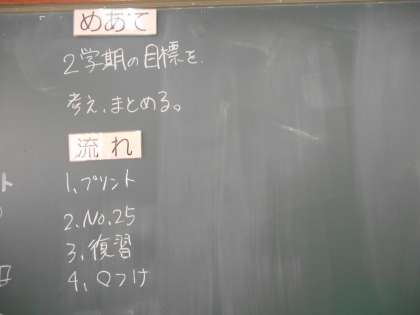 めあて
2学期の目標を
考え、まとめる。
流れ
1、プリント
2、No.25
3、復習
4、〇つけ